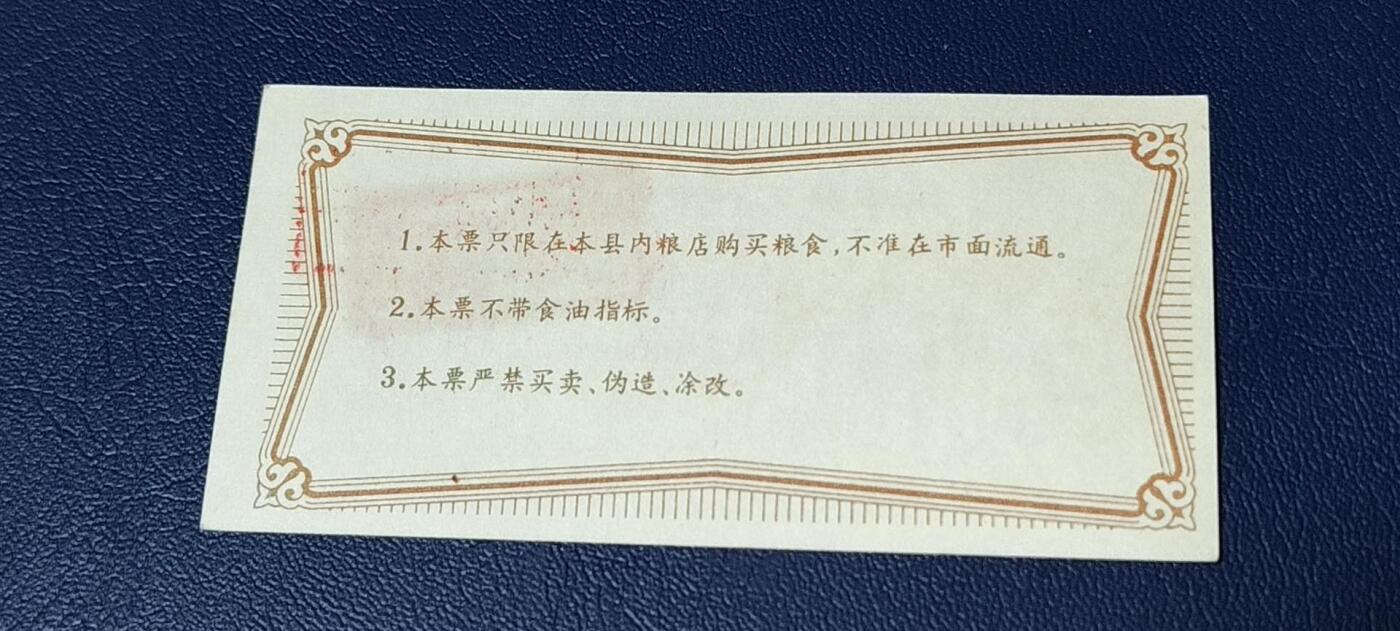 1.本票只限在本县内粮店购买粮食,不准在市面流通。
2.本票不带食油指标。
3.本票严禁买卖、伪造、凃改。